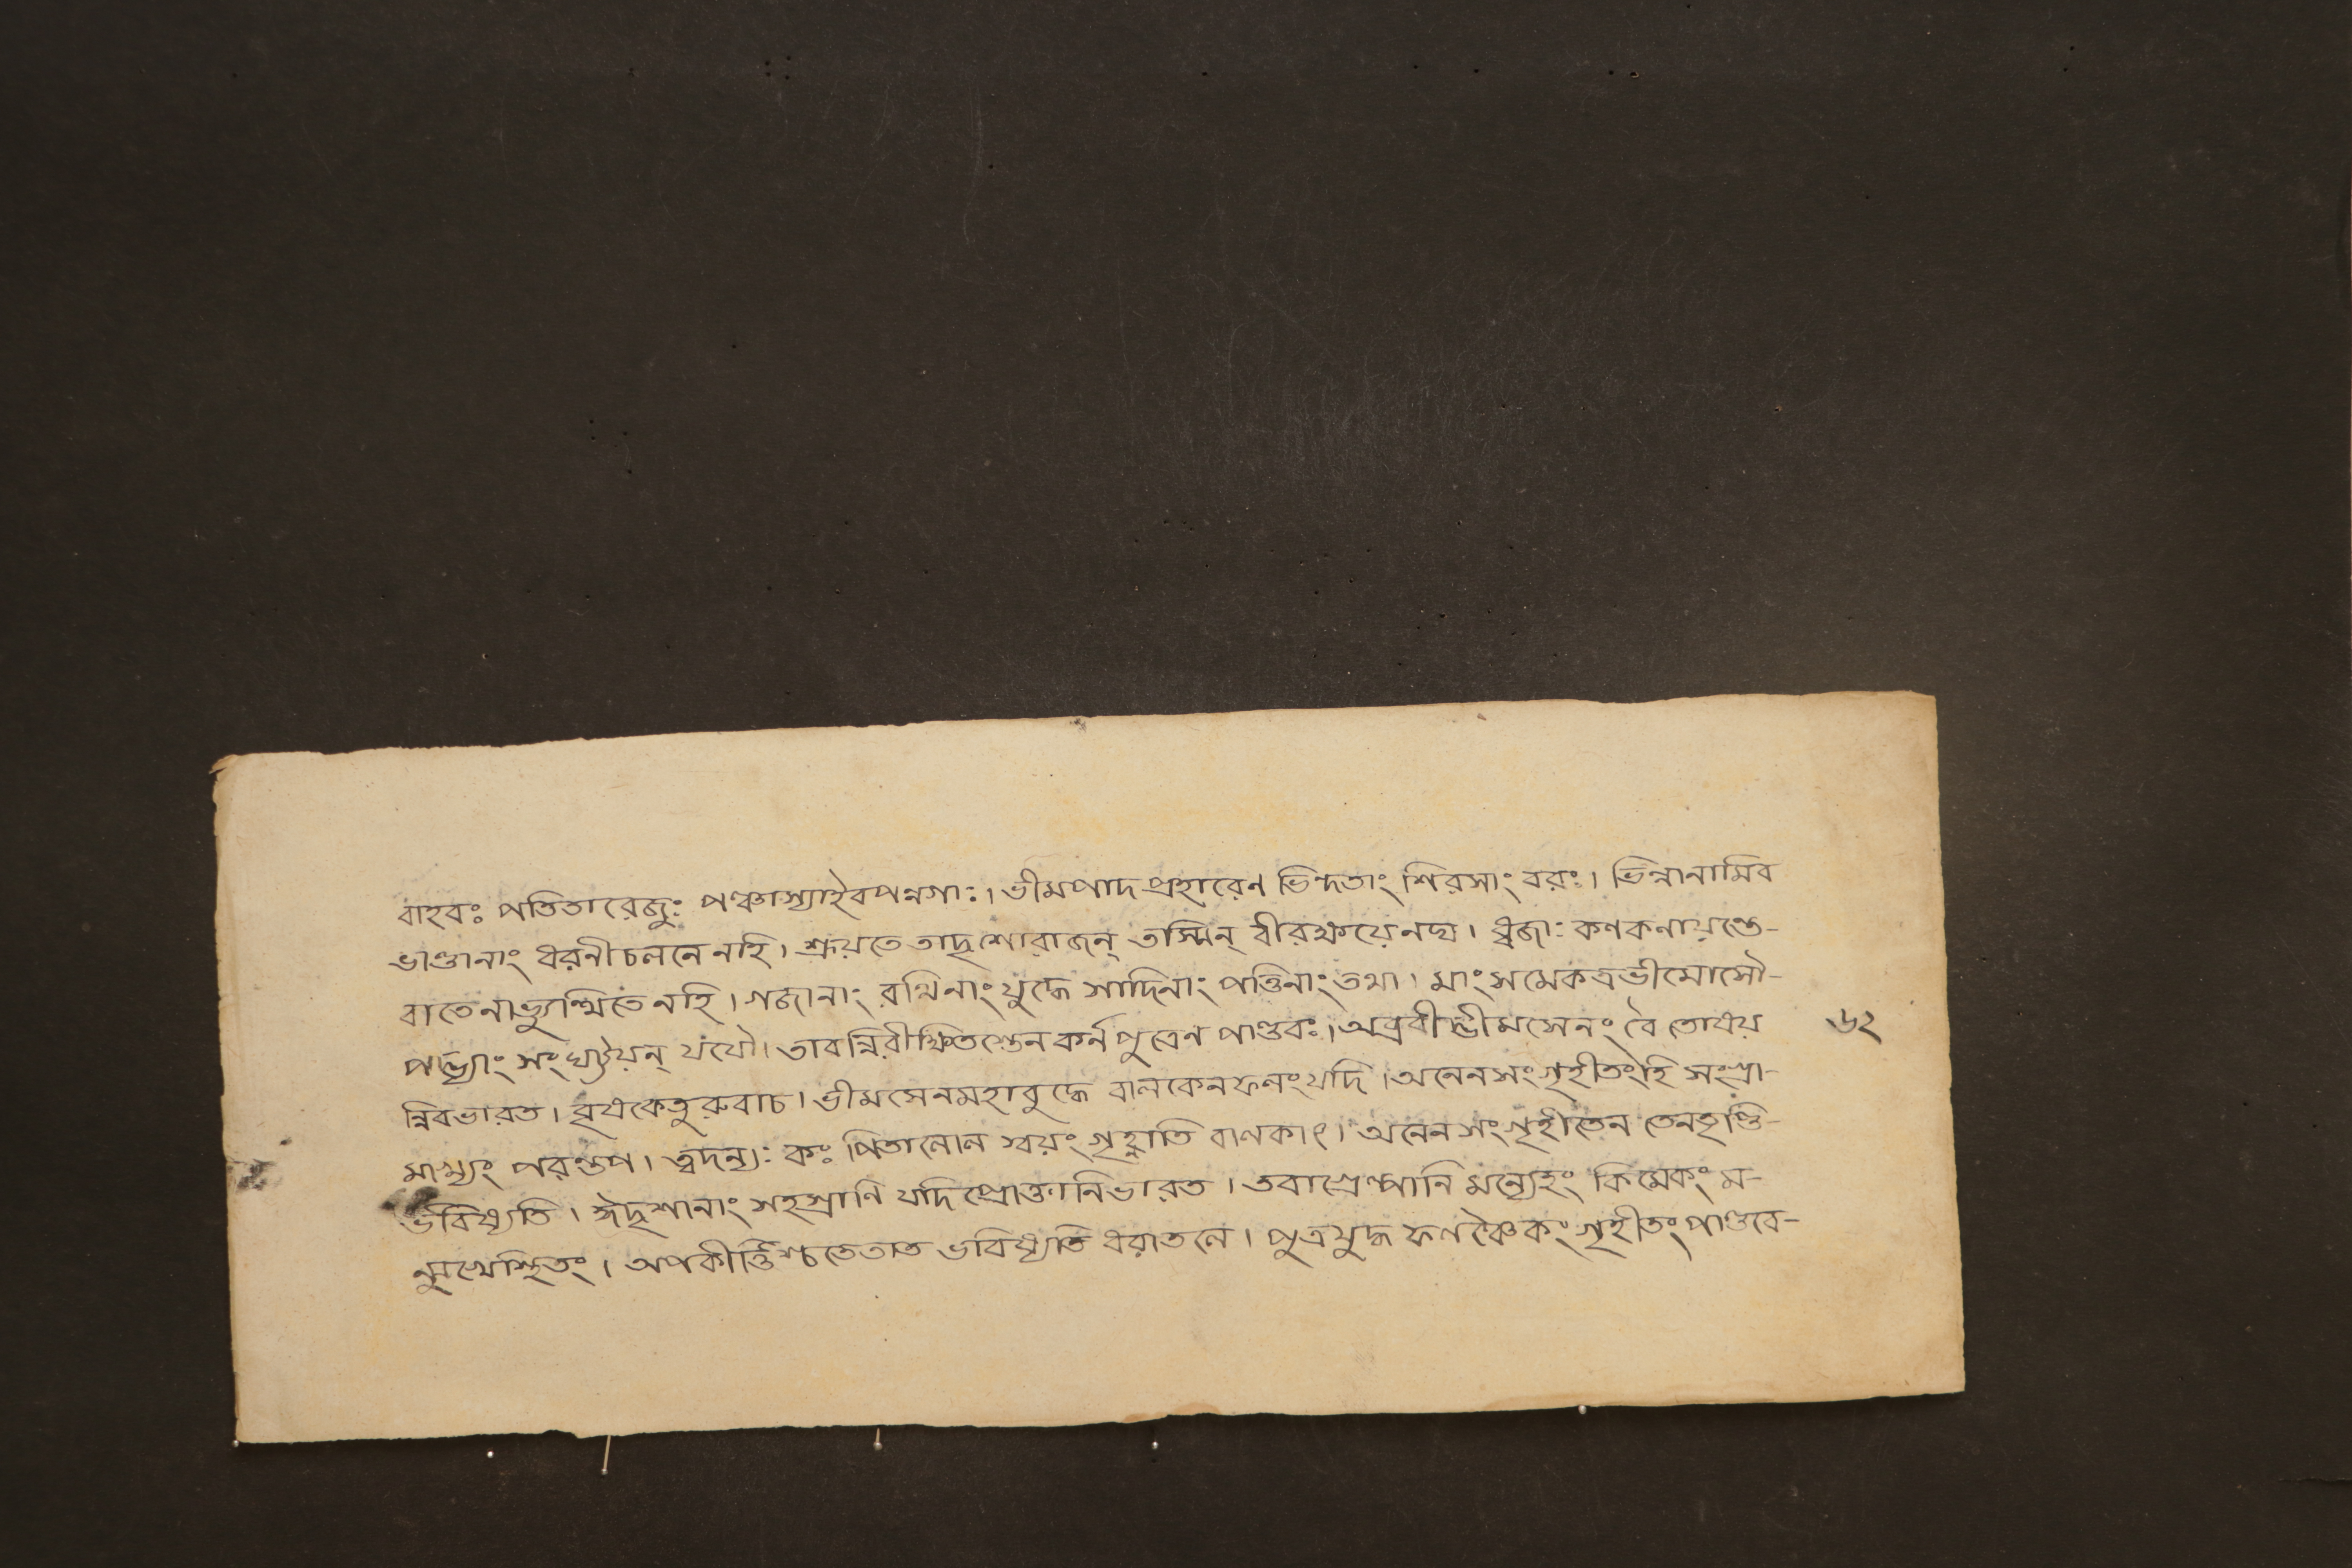 বাহবঃ পতিতারেজুঃ পঞ্চাস্যাইবপন্নগাঃ। ভীমপাদপ্রহারেণ ভিন্দতাং শিরসাং বরঃ। ভিন্নানামিব
ভাণ্ডানাং ধরনীচলনেনহি। শ্রূয়তে তাদৃশোরাজন্ তস্মিন্ বীরক্ষয়েনঘ। ধ্বজাঃ কণকণায়ন্তে-
বাতেনাভ্যুত্থিতেনহি। গজানাং রথিনাং যুদ্ধে সাদিনাং পত্তিনাং তথা। মাংসমেকত্রভীমোসৌ-
পদ্ভ্যাং সংঘট্টয়ন্ যযৌ। তাবন্নিরীক্ষিতস্তেন কর্নপুত্রেণ পাণ্ডবঃ। অব্রবীদ্ভীমসেনং বৈ তোষয় ৬২
ন্নিবভারত। বৃষকেতুরুবাচ। ভীমসেনমহাবুদ্ধে বালকেনফলংযদি। অনেনসংগৃহীতংহি সংপ্রা-
মাখ্যং পরন্তপ। ত্বদন্যঃ কঃ পিতানোন স্বয়ং গৃহ্লাতি বালকাৎ। অনেন সংগৃহীতেন তেনতৃপ্তি-
র্ভবিষ্যতি। ঈদৃশানাং সহস্রাণি যদিপ্রোক্তানিভারত। তবাগ্রেল্পানি মন্যেহং কিমেকং ম-
ন্মুখেস্থিতং। অপকীর্ত্তিশ্চতেতাত ভবিষ্যতি ধরাতলে। পুত্রযুদ্ধ ফলঞ্চৈকং গৃহীতং পাণ্ডবে-